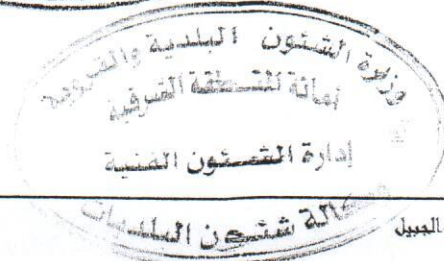 وزارة الشئون البلدية والقروية
أمانة المنطقة الشرقية
إدارة الشئون الفنية
وكالة شئون البلديات
الجبيل